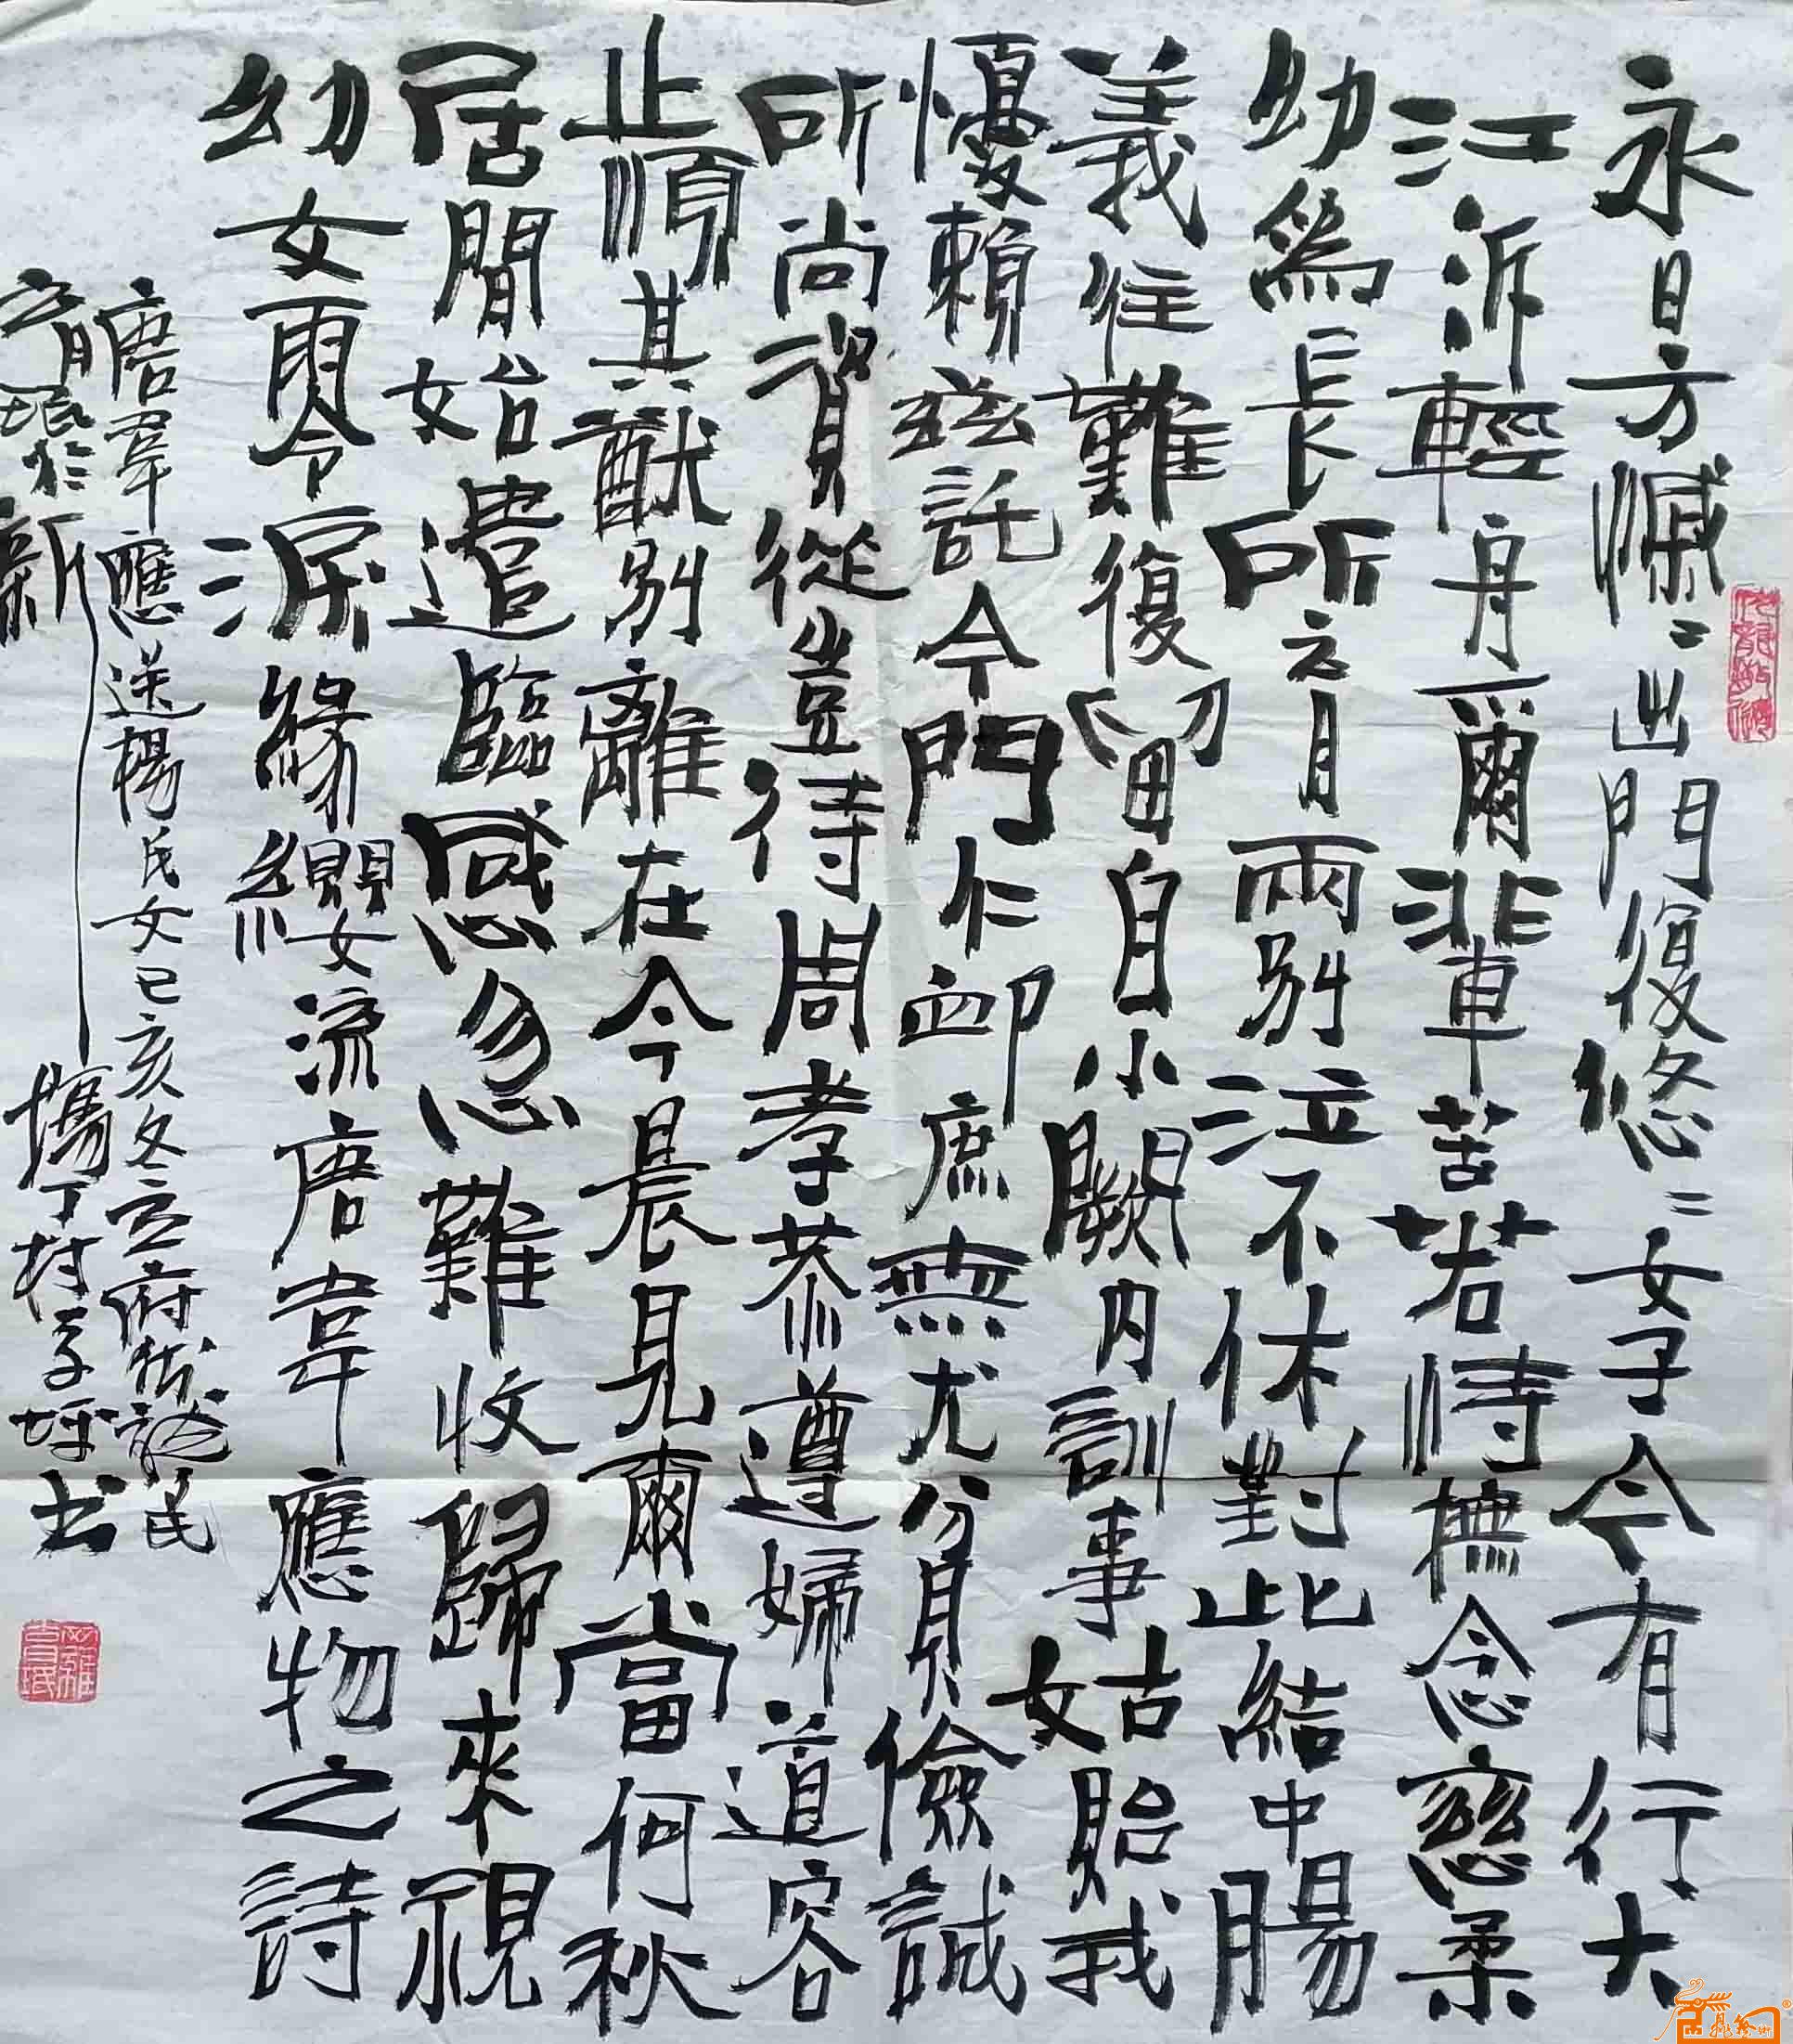 永日方慽〻出門復悠〻女子今有行大
江泝輕舟爾輩苦若恃撫念慈柔
幼為長所育兩別泣不休對此結中腸
義往難復留自小闕內訓事姑貽我
憂賴茲託令門仁卹庶無尤貧儉誠
所尚資從豈待周孝恭遵婦道容
止順其猷別離在今晨見爾當何秋
居閒始遣臨感忽難收歸來視
幼女零淚緣纓流唐韋應物之詩
唐韋應送楊氏女己亥冬立
书